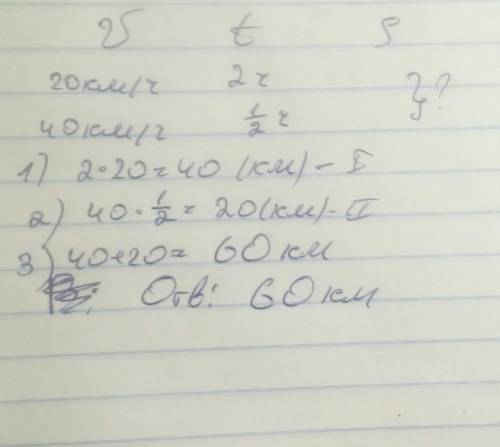 V t S
20км/ч 2ч }?
40км/ч 1/2 ч
1) 2·20=40 (км) – I
2) 40·1/2=20(км)–II
3) 40+20= 60км
Отв: 60км